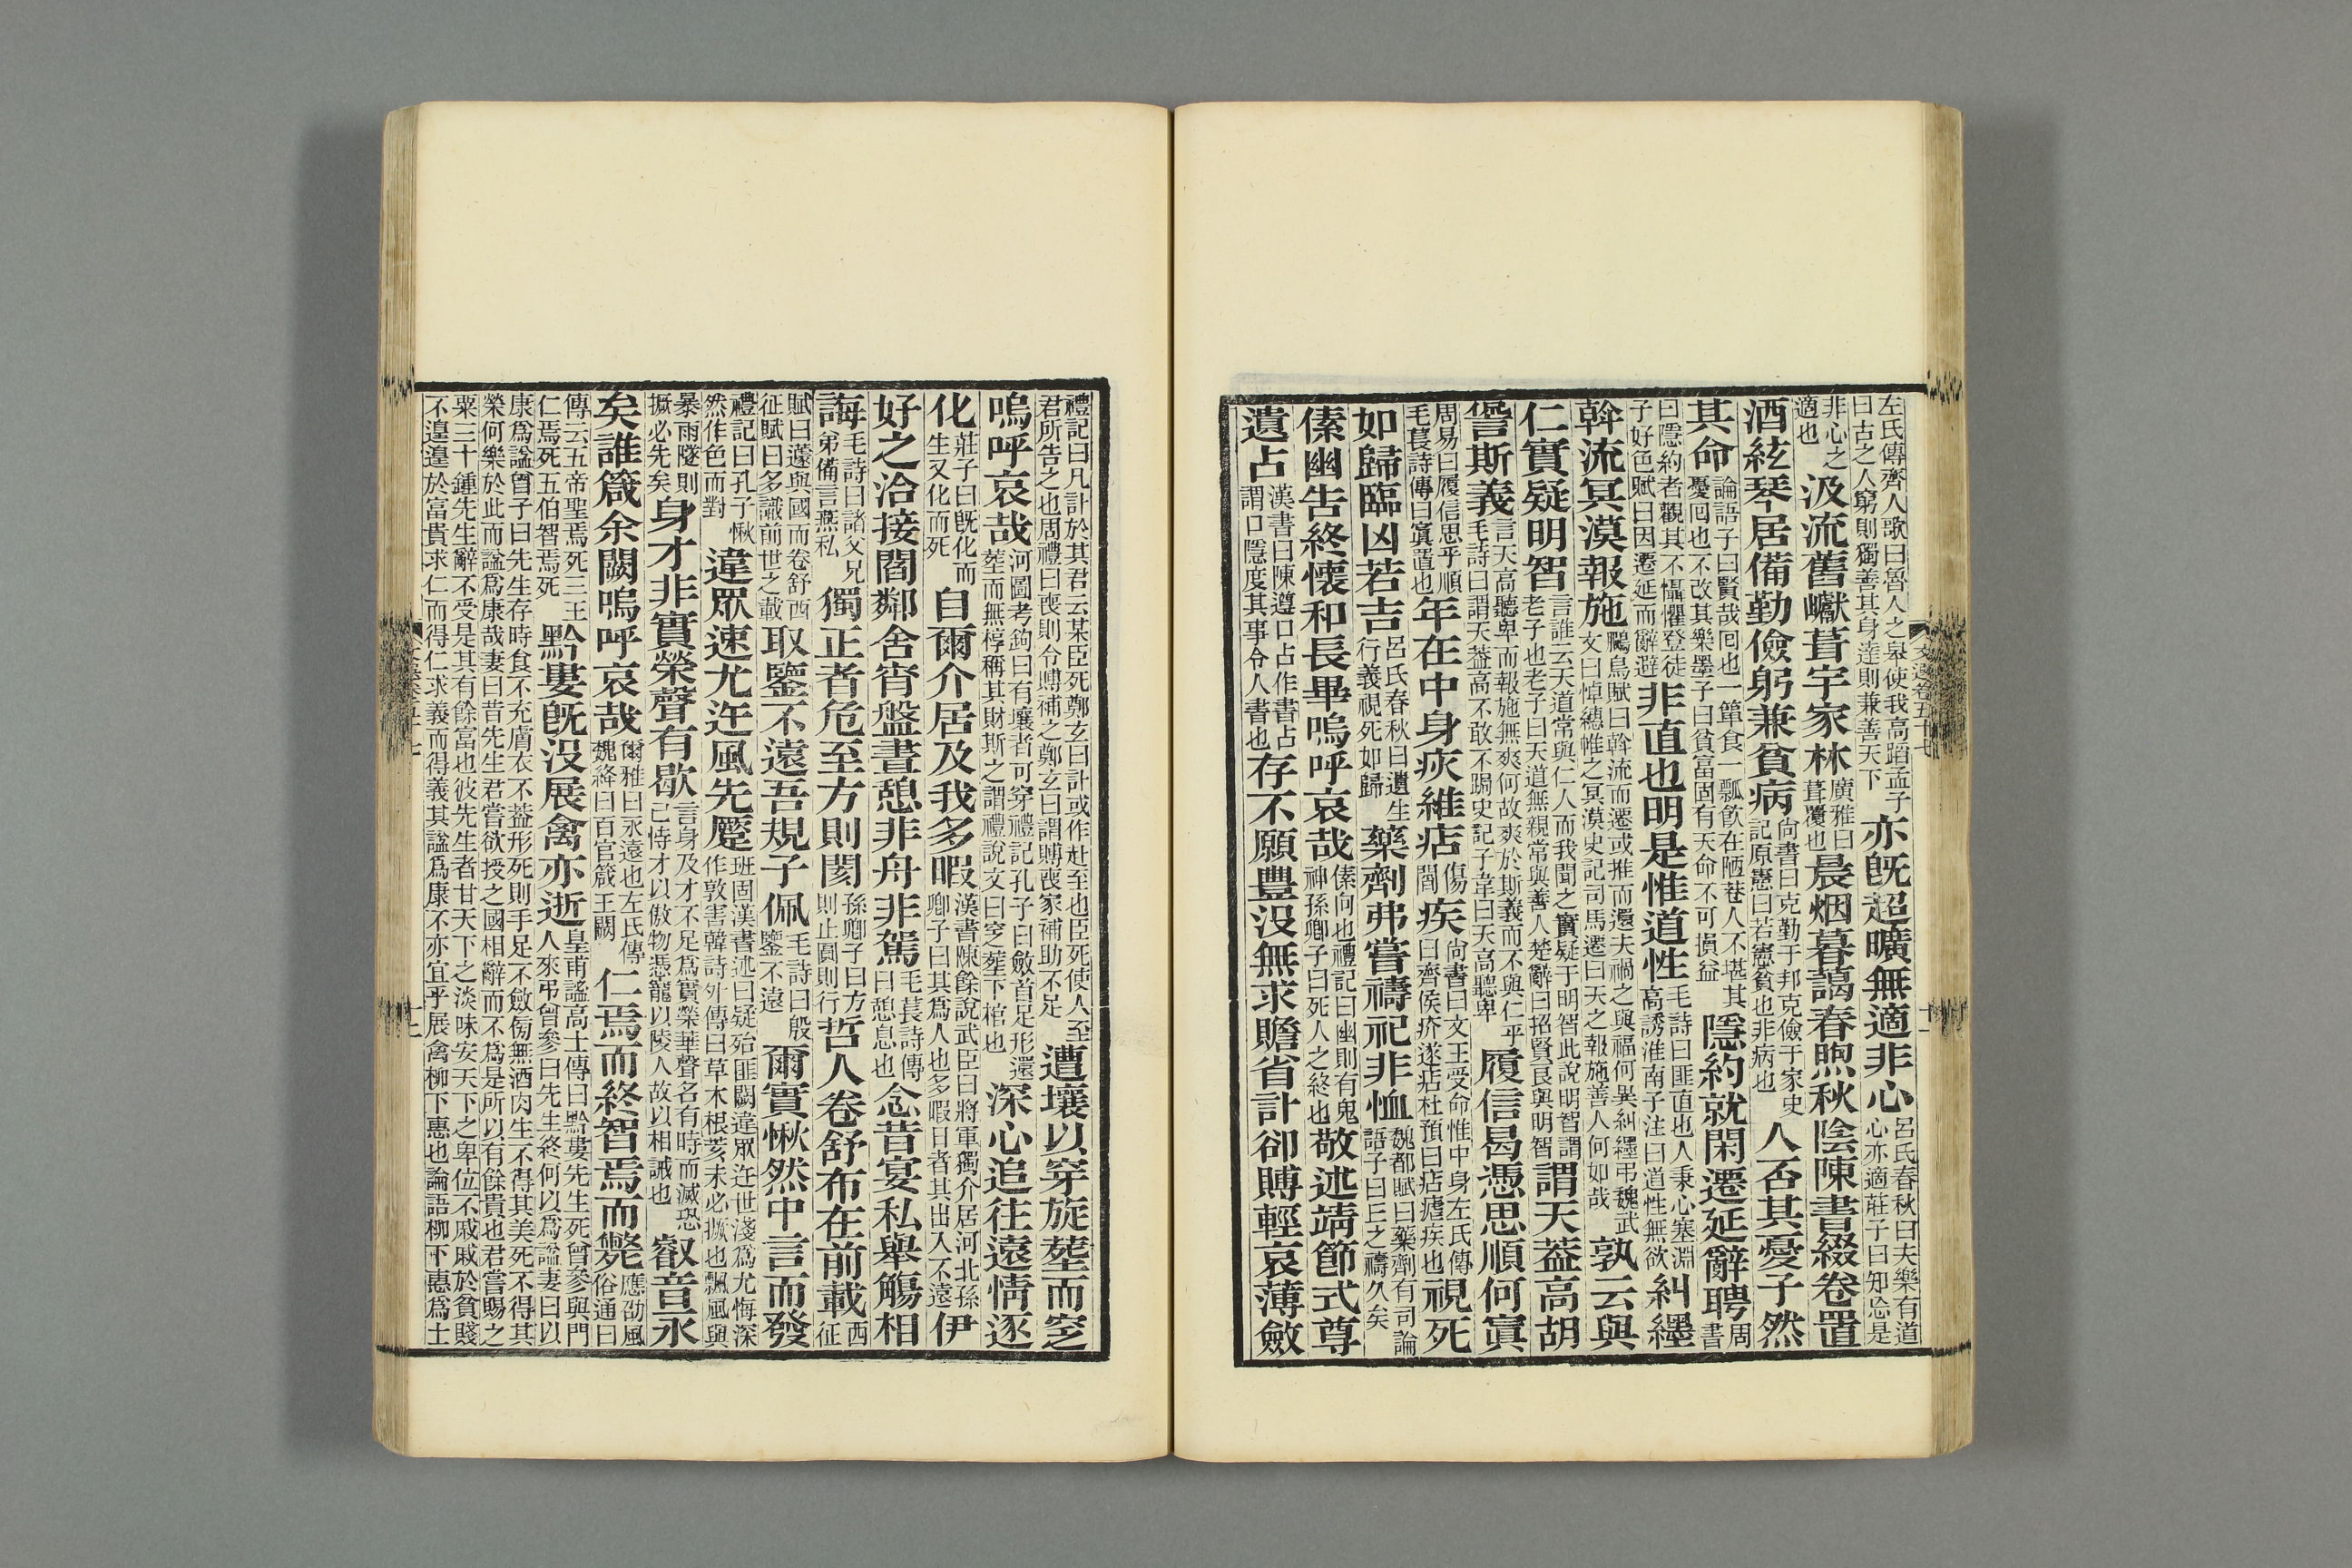 左氏傳齊人歌曰魯人之皋使我高蹈孟子曰古之人窮則獨善其身達則兼善天下亦旣超曠無適非心呂氏春秋曰夫樂有道心亦適莊子曰知忘是
非心之適也汲流舊巘葺宇家林廣雅曰葺覆也晨烟暮藹春煦秋陰陳書綴卷置
酒絃琴居備勤儉躬兼貧病尚書曰克勤于邦克儉于家史記原憲曰若憲貧也非病也人否其憂子然
其命論語子曰賢哉回也一簞食一瓢飲在陋巷人不堪其憂回也不改其樂墨子曰貧富固有天命不可損益隱約就閑遷延辭聘周書
曰隱約者觀其不懾懼登徒子好色賦曰因遷延而辭避非直也明是惟道性毛詩曰匪直也人秉心塞淵高誘淮南子注曰道性無欲糾纆
斡流冥漠報施鵩鳥賦曰斡流而遷或推而還夫禍之與福何異糾纆弔魏武文曰悼繐帷之冥漠史記司馬遷曰天之報施善人何如哉孰云與
仁實疑明智言誰云天道常與仁人而我聞之實疑于明智此說明智謂老子也老子曰天道無親常與善人楚辭曰招賢良與明智謂天蓋高胡
諐斯義言天高聽卑而報施無爽何故爽於斯義而不與仁乎毛詩曰謂天蓋高不敢不跼史記子韋曰天高聽卑履信曷憑思順何寘
周易曰履信思乎順毛萇詩傳曰寘置也年在中身疢維痁傷閻疾尚書曰文王受命惟中身左氏傳曰齊侯疥遂痁杜預曰痁瘧疾也視死
如歸臨凶若吉呂氏春秋曰遺生行義視死如歸藥劑弗嘗禱祀非恤魏都賦曰藥劑有司論語子曰丘之禱久矣
傃幽告終懷和長畢嗚呼哀哉傃向也禮記曰幽則有鬼神孫卿子曰死人之終也敬述靖節式尊
遺占漢書曰陳遵口占作書占謂口隱度其事令人書也存不願豐没無求贍省訃卻賻輕哀薄斂
禮記曰凡訃於其君云某臣死鄭玄曰訃或作赴至也臣死使人至君所告之也周禮曰喪則令賻補之鄭玄曰謂賻喪家補助不足遭壤以穿旋葬而窆
嗚呼哀哉河圖考鉤曰有壤者可穿禮記孔子曰斂首足形還葬而無椁稱其財斯之謂禮說文曰窆葬下棺也深心追往遠情逐
化莊子曰旣化而生又化而死自爾介居及我多暇漢書陳餘說武臣曰將軍獨介居河北孫卿子曰其爲人也多暇日者其出入不遠伊
好之洽接閻鄰舍宵盤晝憩非舟非駕毛萇詩傳曰憩息也念昔宴私舉觴相
誨毛詩曰諸父兄弟備言燕私獨正者危至方則閡孫卿子曰方則止圓則行哲人卷舒布在前載西征
賦曰蘧與國而卷舒西征賦曰多識前世之載取鑒不遠吾規子佩毛詩曰殷鑒不遠爾實愀然中言而發
禮記曰孔子愀然作色而對違眾速尤迕風先蹷班固漢書述曰疑殆匪闕違眾迕世淺爲尤悔深作敦害韓詩外傳曰草木根荄未必撅也飄風與
暴雨隧則撅必先矣身才非實榮聲有歇言身及才不足爲實榮華聲名有時而滅恐己恃才以傲物憑寵以陵人故以相誡也叡音永
矣誰箴余闕嗚呼哀哉爾雅曰永遠也左氏傳魏絳曰百官箴王闕仁焉而終智焉而斃應劭風俗通曰
傳云五帝聖焉死三王仁焉死五伯智焉死黔婁旣没展禽亦逝皇甫謐高士傳曰黔婁先生死曾參與門人來弔曾參曰先生終何以爲謚妻曰以
康爲謚曾子曰先生存時食不充膚衣不蓋形死則手足不斂傍無酒肉生不得其美死不得其榮何樂於此而謚爲康哉妻曰昔先生君嘗欲授之國相辭而不爲是所以有餘貴也君嘗賜之
粟三十鍾先生辭不受是其有餘富也彼先生者甘天下之淡味安天下之卑位不戚戚於貧賤不遑遑於富貴求仁而得仁求義而得義其謚爲康不亦宜乎展禽柳下惠也論語柳下惠爲士